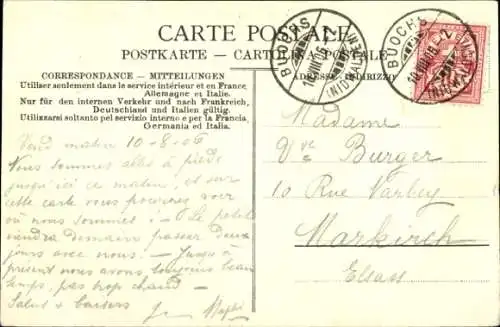 CARTE POSTALE
POSTKARTE — CARTOLINA POSTALE
CORRESPONDANCE - MITTEILUNGEN
ADRESSE - INDIRIZZO
Utiliser seulement dans le service intérieur et en France,
Allemagne et Italie.
Nur für den internen Verkehr und nach Frankreich,
Deutschland und Italien gültig.
Utilizzarsi soltanto pel servizio interno e per la Francia,
Germania ed Italia.
BUOCHS
10.VIII.06
(NIDWALDEN)
BUOCHS
10.VIII.06
(NIDWALDEN)
Vend matin 10-8-06
Nous sommes allés à pied
jusqu'ici ce matin, et sur
cette carte vous pourrez voir
où nous sommes! — Le petit
viendra demain passer deux
jours avec nous. — Jusqu'à
présent nous avons toujours beau
temps, pas trop chaud —
Salut & baisers
Madame
Vve Burger
10 Rue
Markirch
Elsass